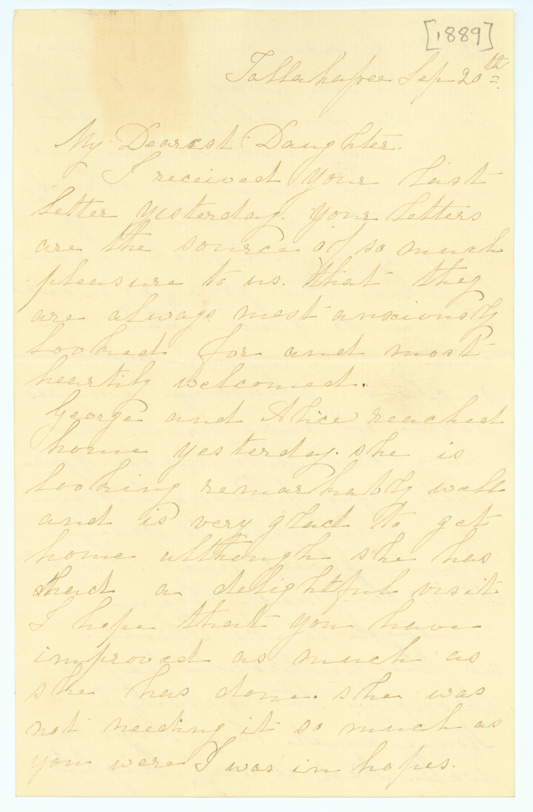 [1889]
Tallahassee Sep 20th
My Dearest Daughter.
I received your last
letter yesterday. Your letters
are the source of so much
pleasure to us. that they
are always most anxiously
looked for and most
heartily welcomed.
George and Alice reached
home yesterday. she is
looking remarkably well
and is very glad to get
home although she has
had a delightful visit
I hope that you have
improved as much as
she has done. she was
not needing it so much as
you were I was in hopes.